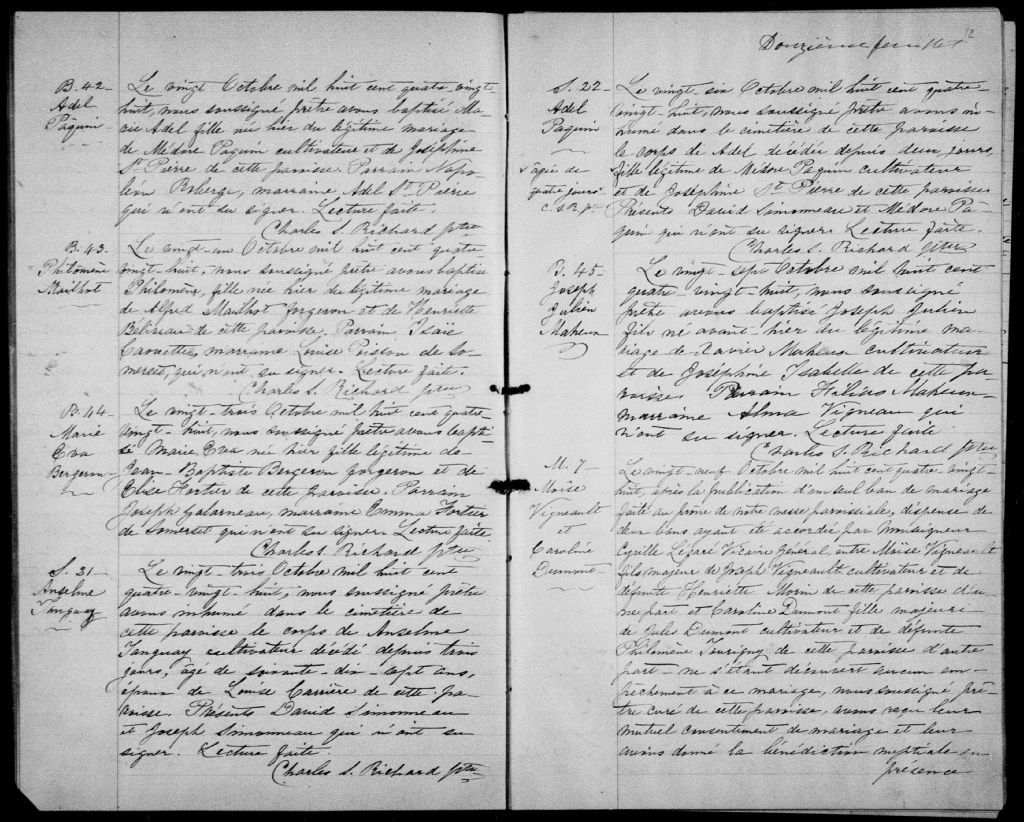 B. 42
Adel
Paquin
Le vingt Octobre mil huit cent quatre-vingt-
huit, nous soussigné prêtre avons baptisé Ma-
rie Adel fille née hier du légitime mariage
de Médore Paquin cultivateur et de Joséphine
St Pierre de cette paroisse. Parrain Napo-
léon Roberge, marraine Adel St Pierre
qui n'ont su signer. Lecture faite.
Charles S. Richard Ptre
B. 43
Philomène
Mailhot
Le vingt-un Octobre mil huit cent quatre-
vingt-huit, nous soussigné prêtre avons baptisé
Philomène, fille née hier du légitime mariage
de Alfred Mailhot forgeron et de Henriette
Béliveau de cette paroisse. Parrain Isaïe
Caouette, marraine Louise Poisson de So-
merset, qui n'ont su signer. Lecture faite.
Charles S. Richard Ptre
B. 44
Marie
Eva
Bergeron
Le vingt-trois Octobre mil huit cent quatre-
vingt-huit, nous soussigné prêtre avons bapti-
sé Marie Eva née hier fille légitime de
Jean-Baptiste Bergeron forgeron et de
Elise Fortier de cette paroisse. Parrain
Joseph Galarneau, marraine Emma Fortier
de Somerset qui n'ont su signer. Lecture faite.
Charles S. Richard Ptre
S. 21
Anselme
Tanguay
Le vingt-trois Octobre mil huit cent
quatre-vingt-huit, nous soussigné prêtre
avons inhumé dans le cimetière de
cette paroisse le corps de Anselme
Tanguay cultivateur décédé depuis trois
jours, âgé de soixante-dix-sept ans,
époux de Louise Carrière de cette pa-
roisse. Présents David Simonneau
et Joseph Simonneau qui n'ont su
signer. Lecture faite
Charles S. Richard Ptre
12
Douzième feuillet
S. 22
Adel
Paquin
v âgée de
quatre jours
C. S. R. Ptre
Le vingt-six Octobre mil huit cent quatre-
vingt-huit, nous soussigné prêtre avons in-
humé dans le cimetière de cette paroisse
le corps de Adel décédée depuis deux jours,
v fille légitime de Médore Paquin cultivateur
et de Joséphine St Pierre de cette paroisse
Présents David Simonneau et Médore Pa-
quin qui n'ont su signer. Lecture faite.
Charles S. Richard Ptre
B. 45
Joseph
Julien
Maheux
Le vingt-sept Octobre mil huit cent
quatre-vingt-huit, nous soussigné
prêtre avons baptisé Joseph Julien
fils né avant-hier du légitime ma-
riage de Xavier Maheux cultivateur
et de Joséphine Isabelle de cette pa-
roisse. Parrain Maheux
marraine Alma Vigneau qui
n'ont su signer. Lecture faite
Charles S. Richard Ptre
M. 7
Moïse
Vigneault
et
Caroline
Dumont
Le vingt-neuf Octobre mil huit cent quatre-vingt-
huit, après la publication d'un seul ban de mariage
faite au prône de notre messe paroissiale, dispense de
deux bans ayant été accordée par Monseigneur
Cyrille Légaré Vicaire Général, entre Moïse Vigneault
fils majeur de Joseph Vigneault cultivateur et de
défunte Henriette Morin de cette paroisse d'u-
ne part et Caroline Dumont fille majeure
de Jules Dumont cultivateur et de défunte
Philomène Tourigny de cette paroisse d'autre
part-ne s'étant découvert aucun em-
pêchement à ce mariage, nous soussigné prê-
tre curé de cette paroisse, avons reçu leur
mutuel consentement de mariage et leur
avons donné la bénédiction nuptiale en
présence